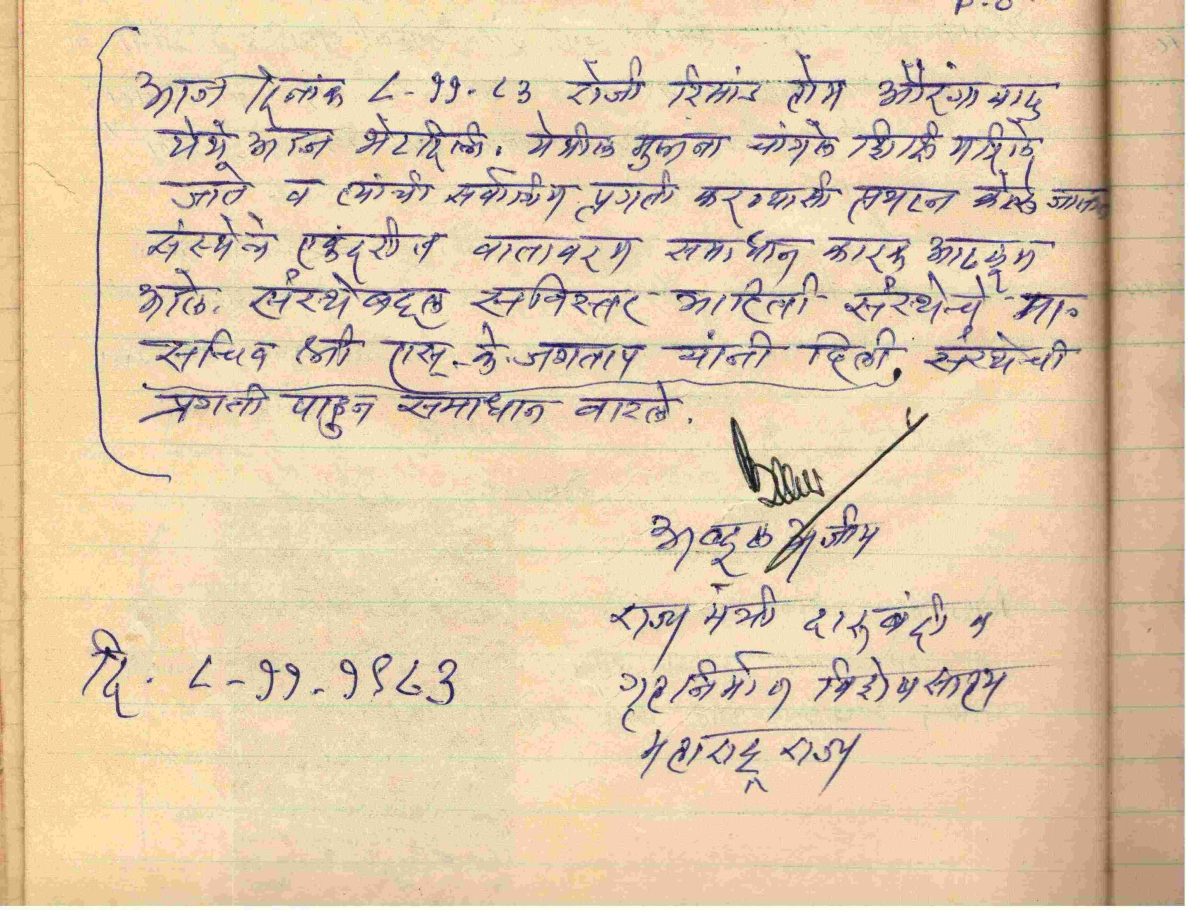 P-8
आज दिनांक ८-११-८३ रोजी रिमांड होम औरंगाबाद
येथे आज भेट दिली. येथील मुलांना चांगले शिक्षण दिले
जाते व त्यांची सर्वांगिण प्रगती करण्याची प्रयत्न केले जातात
संस्थेचे एकंदरीत वातावरण समाधान कारक आढळून
आले. संस्थेबद्दल सविस्तर माहिती संस्थेचे मा.
सचिव श्री एस्.के.जगताप यांनी दिली. संस्थेची
प्रगती पाहून समाधान वाटले.
अब्दुल अजीम
राज्य मंत्री दारुबंदी व
दि. ८-११-१९८३
गृहनिर्माण विशेष सहाय्य
महाराष्ट्र राज्य